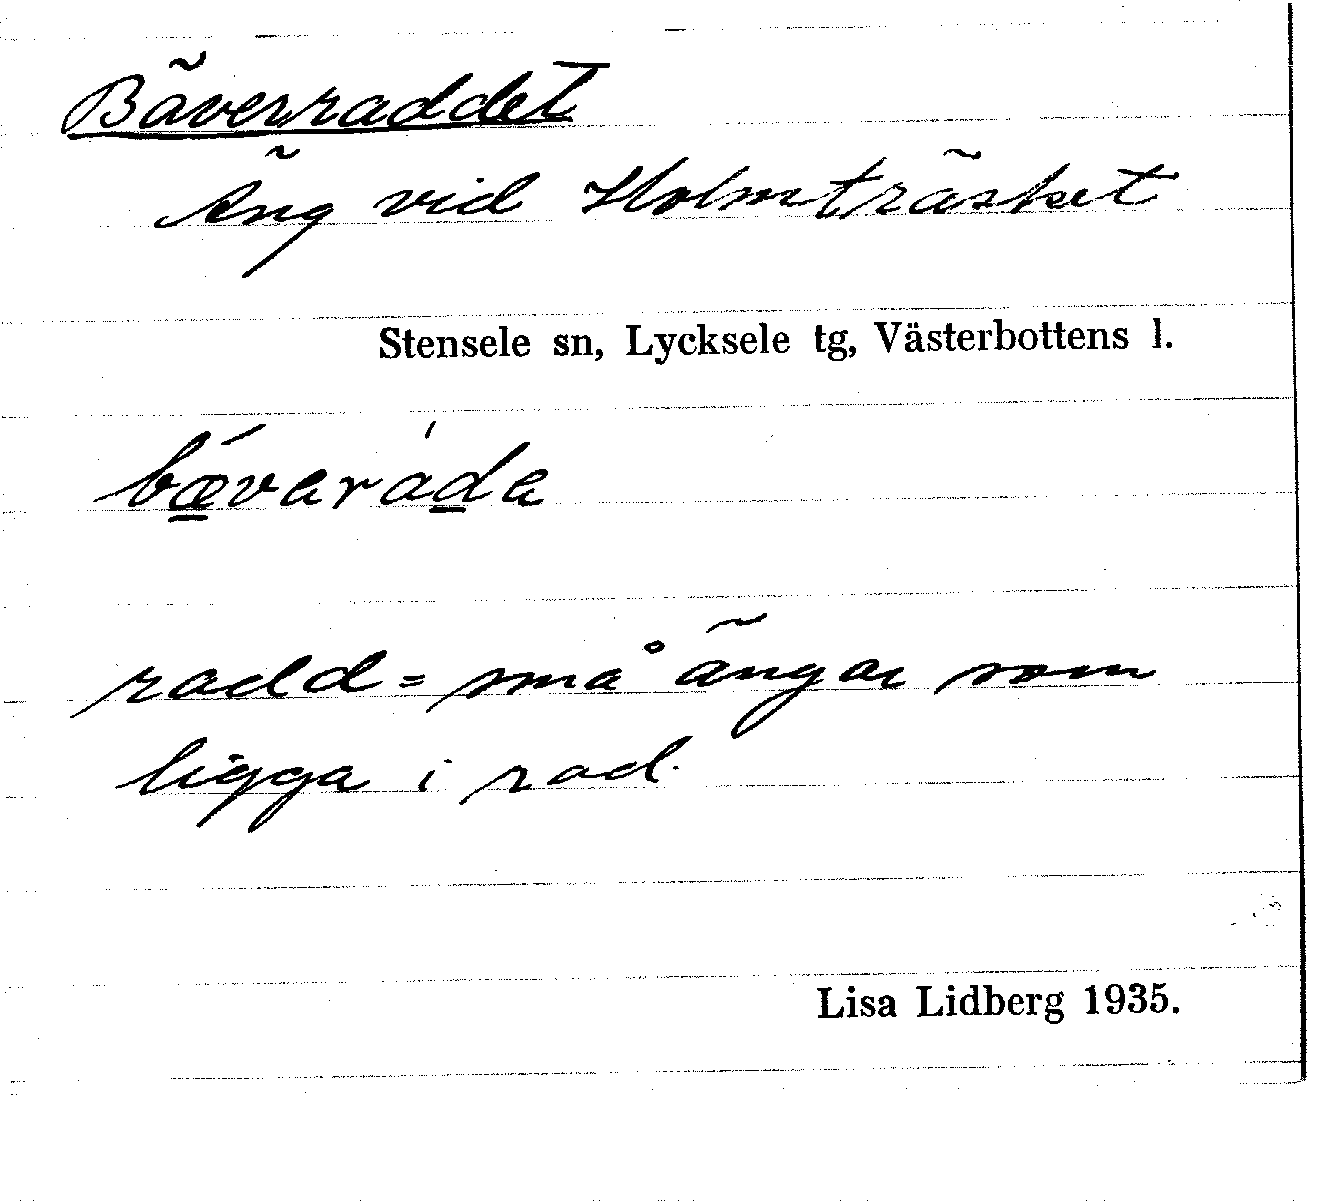 Bäverraddet
Äng vid Holmträsket
Stensele sn, Lycksele tg, Västerbottens l.
bǽ̲varád̲a
radd = små ängar som
ligga i rad.
Lisa Lidberg 1935.